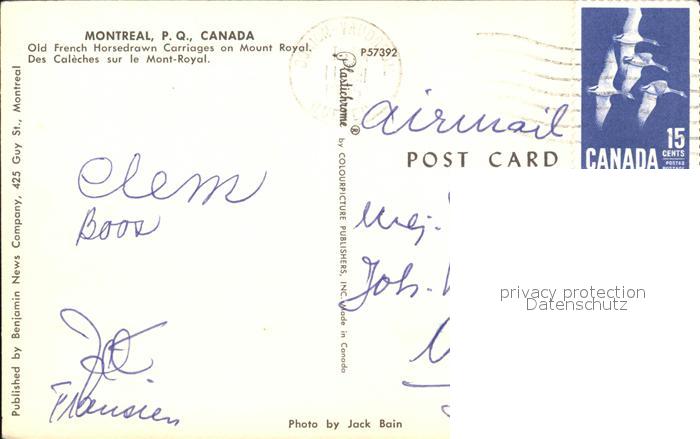 MONTREAL, P. Q., CANADA
Old French Horsedrawn Carriages on Mount Royal.
Des Calèches sur le Mont-Royal.
P57392
Published by Benjamin News Company, 425 Guy St., Montreal
Plastichrome ® by COLOURPICTURE PUBLISHERS, INC. Made in Canada
airmail
POST CARD
15
CENTS
CANADA
POSTES
POSTAGE
Clem
Boos
Joh.
privacy protection
Datenschutz
Photo by Jack Bain